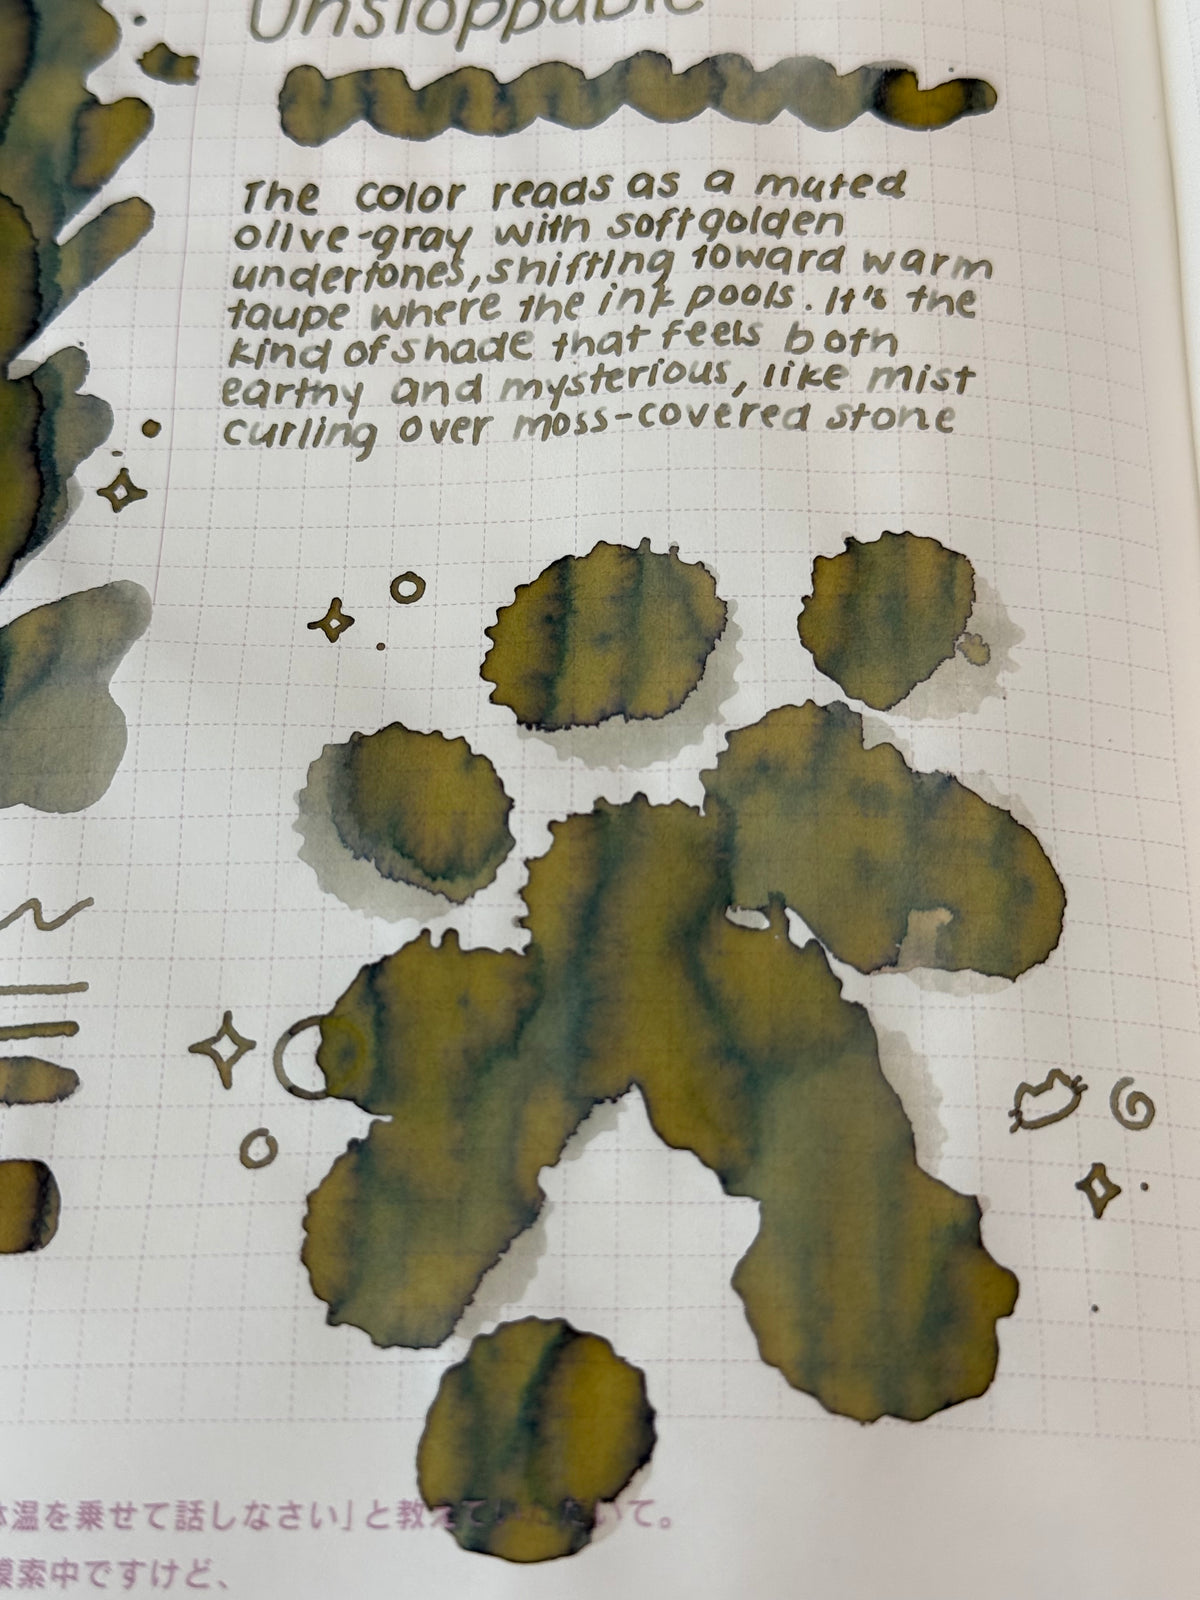 Unstoppable
The color reads as a muted
olive-gray with soft golden
undertones, shifting toward warm
taupe where the ink pools. It's the
kind of shade that feels both
earthy and mysterious, like mist
curling over moss-covered stone
体温を乗せて話しなさい」と教えていただいて。
模索中ですけど、